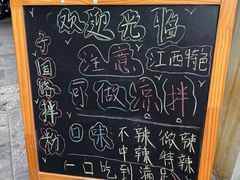 欢迎光临
注意
江西特色
可做凉拌
宁国路拌粉
口味
不辣
微辣
中辣
特辣
一口吃到满